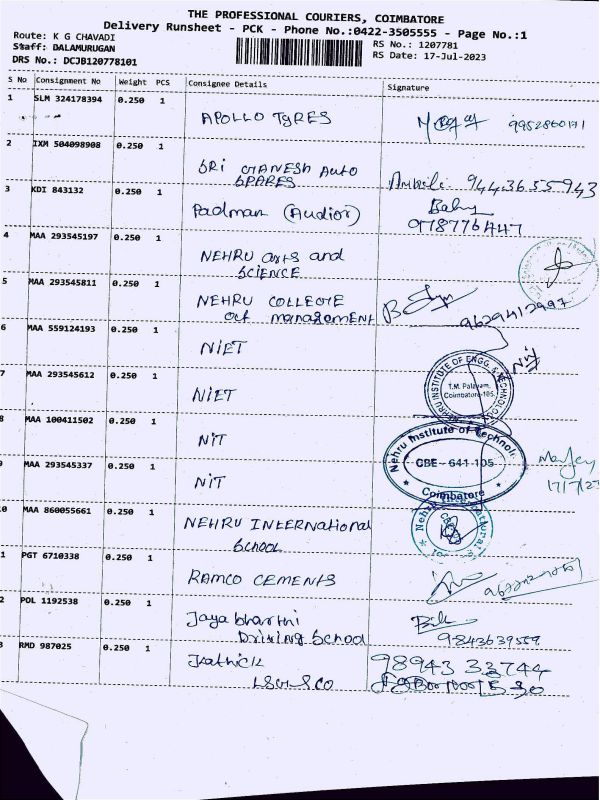 THE PROFESSIONAL COURIERS, COIMBATORE
Delivery Runsheet - PCK - Phone No.:0422-3505555 - Page No.:1
Route: K G CHAVADI
RS No.: 1207781
Staff: DALAMURUGAN
RS Date: 17-Jul-2023
DRS No.: DCJB120778101
S No Consignment No Weight PCS Consignee Details Signature
1 SLM 324178394 0.250 1
APOLLO TyRES 9952860171
2 IXM 504098908 0.250 1
SRI GANESH Auto
SPARES 9443655943
3 KDI 843132 0.250 1
Padman (Audior) Baby
9787764447
4 MAA 293545197 0.250 1
NEHRU arts and
SCIENCE
5 MAA 293545811 0.250 1
NEHRU COLLEGE
of management 9629412997
6 MAA 559124193 0.250 1
NIET
7 MAA 293545612 0.250 1
NEHRU INSTITUTE OF ENGG. & TECHNOLOGY
T.M. Palayam,
Coimbatore-105.
NIET
8 MAA 100411502 0.250 1
NIT
Nehru Institute of Technology
CBE - 641 105
Coimbatore
9 MAA 293545337 0.250 1
NIT
17/7/23
0 MAA 860055661 0.250 1
NEHRU INTERnational
School
1 PGT 6710338 0.250 1
RAMCO CEMENTS
2 POL 1192538 0.250 1
Jaya bharthi
Driving School 9843639559
3 RMD 987025 0.250 1
Kathick 98943 33744